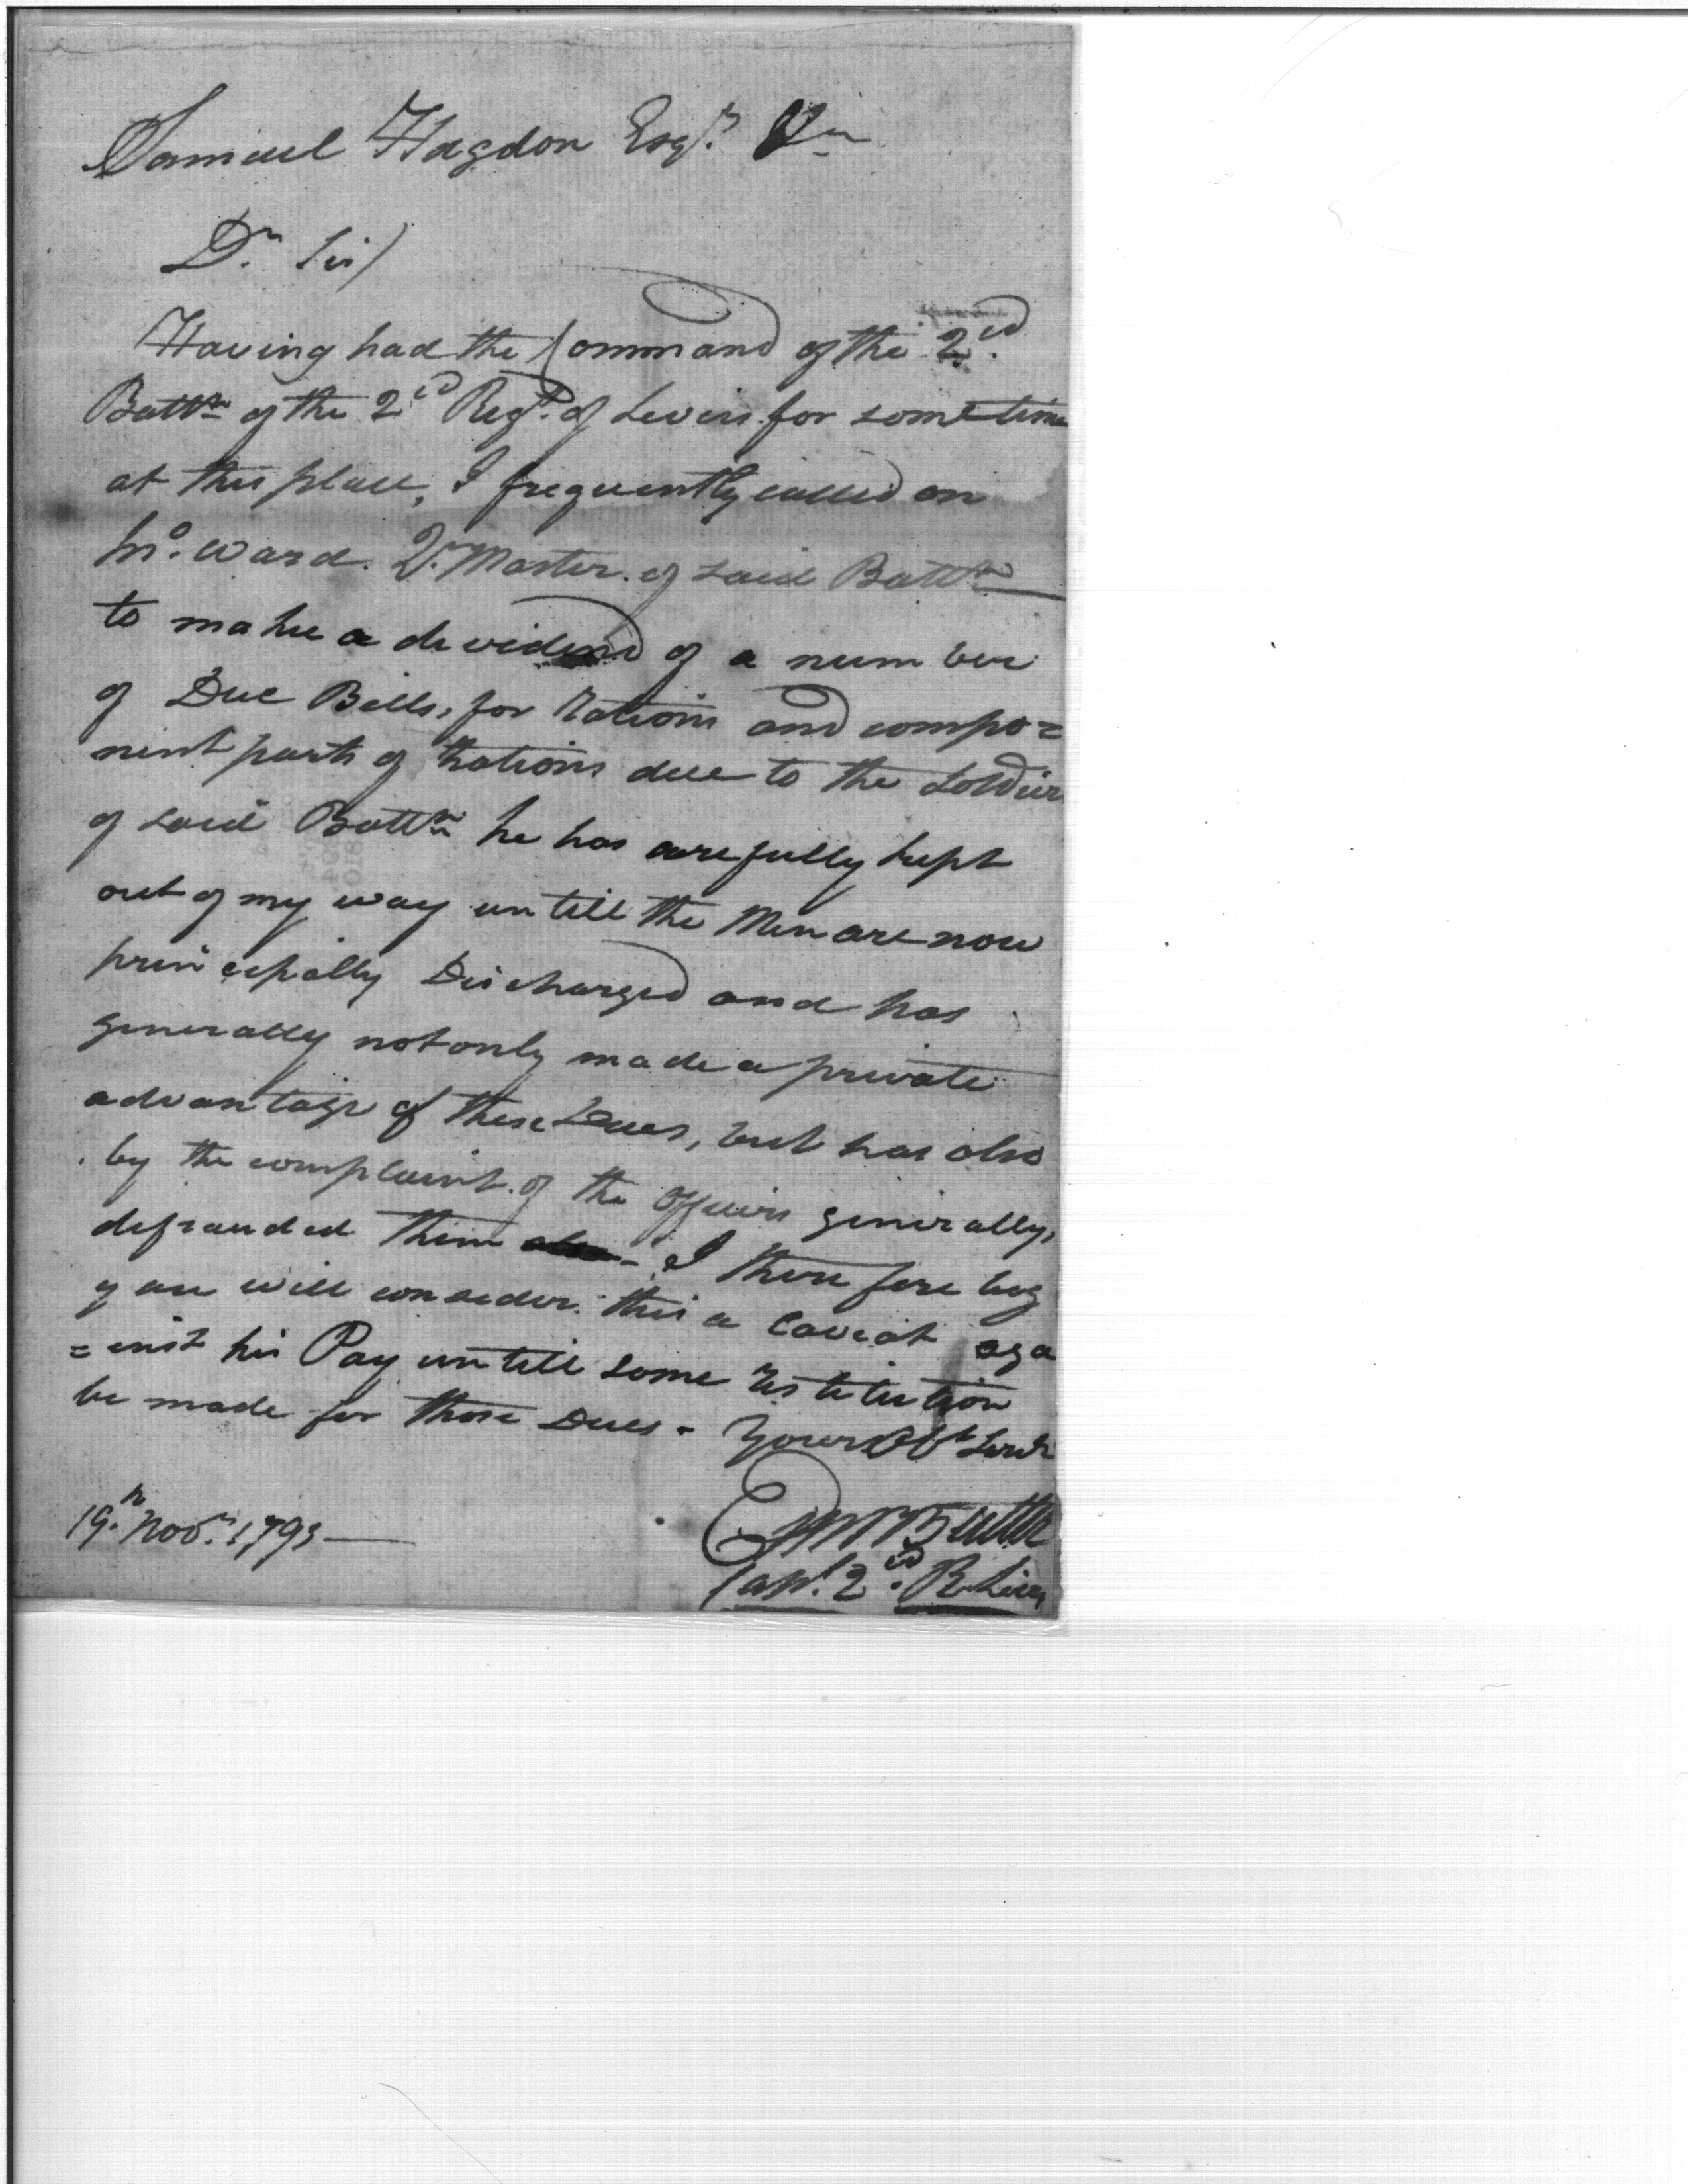 Samuel Hogdon Esqr.
Dr. Sir)
Having had the Command of the 2nd.
Battn of the 2nd Regt. of Levies for sometime
at this place, I frequently called on
Mr. Ward. Qr. Master of said Battn
to make a devidend of a number
of Due Bills, for Rations and compo=
nent parts of Rations due to the Soldiers
of said Battn he has carefully kept
out of my way untill the Men are now
principally Discharged and has
generally not only made a private
advantage of these Dues, but has also
by the complaint of the officers generally,
defrauded them - I there fore beg
you will consider this a Caveat aga
=inst his Pay untill some restitution
be made for those Dues - Your Obt Servt
19th Novr. 1791
Edwd Butler
Capt. 2nd. R Levies